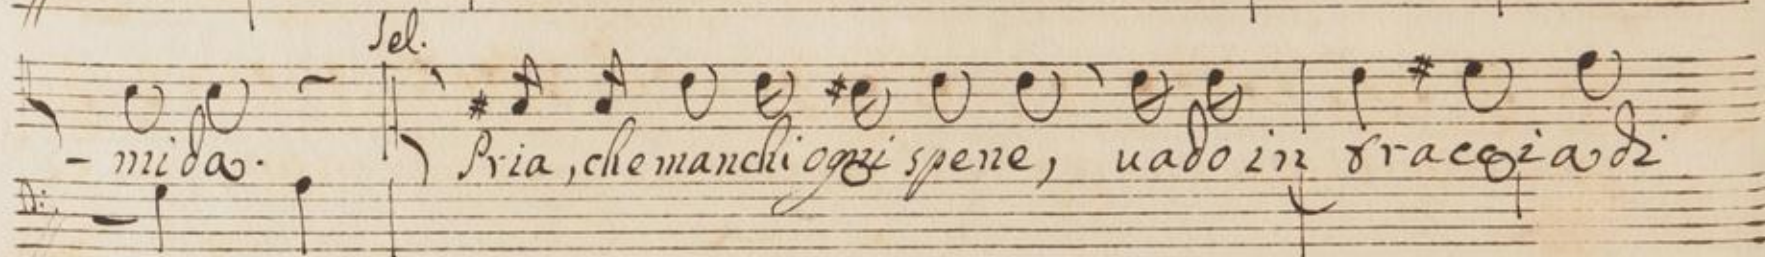 Sel.
- mida. Pria, che manchi ogni spene, uado in traccia di